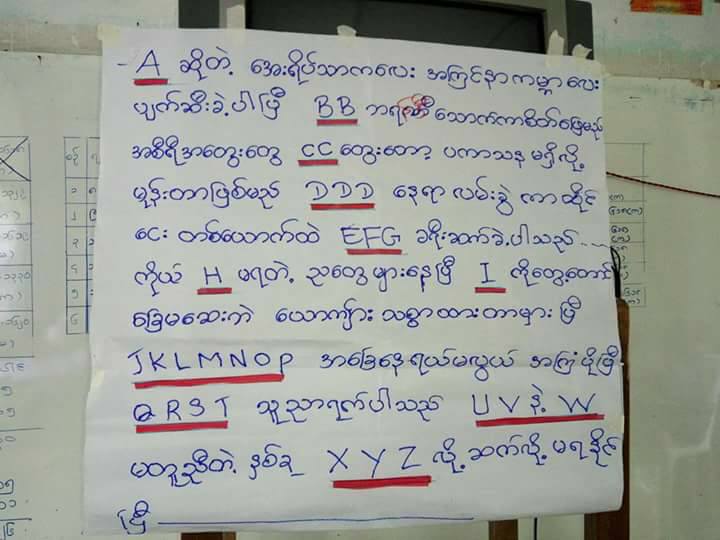 - A ဆိုတဲ့ အေးရိပ်သာကလေး အကြင်နာကမ္ဘာလေး
ပျက်ဆီးခဲ့ပါပြီ BB ဘရဏ်ဒီသောက်ကာစိတ်ဖြေမည်
အစီရီအတွေးတွေ CC တွေးတော့ ပကာသနမရှိလို့
မုန်းတာဖြစ်မည် DDD နေရာလမ်းခွဲကာဆိုင်
ငေး တစ်ယောက်ထဲ EFG ခရီးဆက်ခဲ့ပါသည်....
ကိုယ် H မရတဲ့ ညတွေများနေပြီ I ကိုတွေ့တော်
ခြေမဆေးကဲ ယောကျ်ားသစ္စာထားတာမှားပြီ
JKLMNOP အခြေနေရယ်မလွယ် အကြံပိုပြီ
QRST သူညာရက်ပါသည် UV နဲ့ W
မတူညီတဲ့ နှစ်ခု XYZ လို့ဆက်လို့မရနိုင်
ပြီ